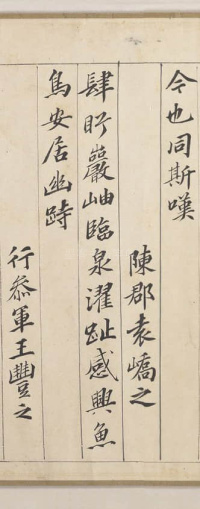 今也同斯嘆
陳郡袁嶠之
肆盻巖岫臨泉濯趾感興魚
鳥安居幽跱
行叅軍王豐之